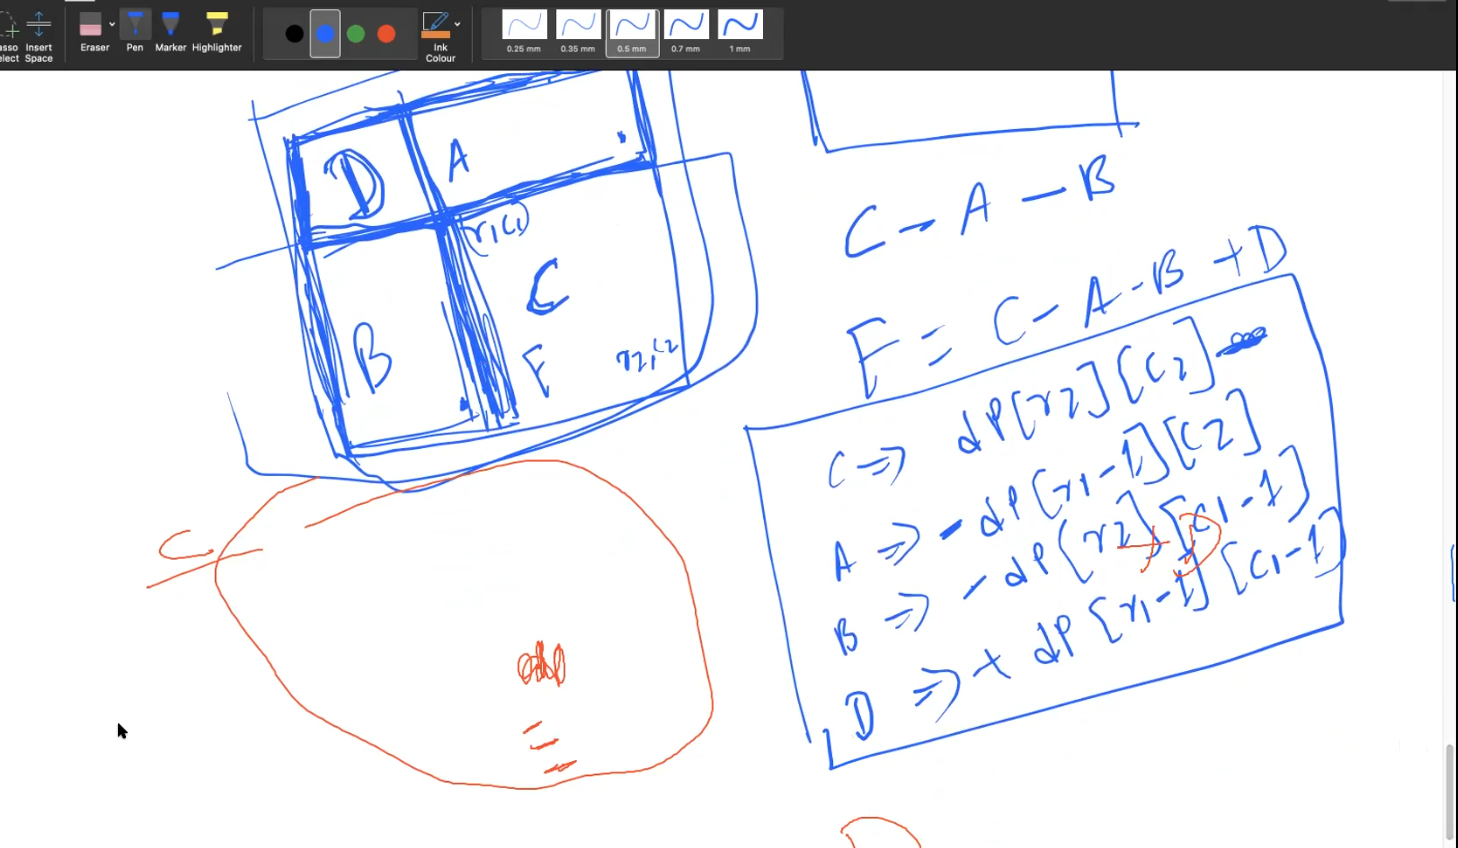 Lasso Select
Insert Space
Eraser
Pen
Marker
Highlighter
Ink Colour
0.25 mm
0.35 mm
0.5 mm
0.7 mm
1 mm
D
A
(r1,c1)
C
B
F
r2,c2
C - A - B
F = C - A - B + D
C => dp[r2][c2]
A => - dp[r1-1][c2]
B => - dp[r2][c1-1]
D => + dp[r1-1][c1-1]
+ D
C